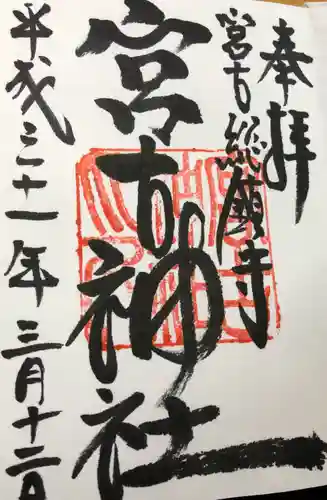 奉拝
宮古総願寺
宮古神社
平成三十一年三月十二日